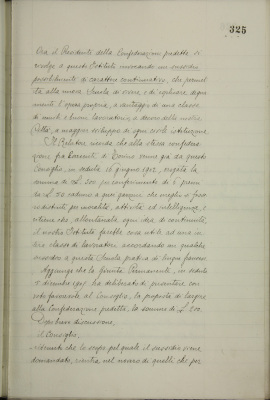 325
Ora il Presidente della Confederazione predetta si
rivolge a questo Istituto invocando un sussidio
possibilmente di carattere continuativo, che permet
ta alla nuova Scuola di vivere e di esplicare degna
mente l'opera propria, a vantaggio di una classe
di umili e buoni lavoratori, a decoro della nostra
Città, a maggior sviluppo di ogni civile istituzione.
Il Relatore ricorda che alla stessa Confedera
zione fra Esercenti di Torino venne già da questo
Consiglio, in seduta 16 giugno 1902, erogata la
somma di L. 300 pel conferimento di 6 premi
da L. 50 caduno a quei garzoni che meglio si fosse
ro distinti per moralità, attività ed intelligenza, e
ritiene che, allontanata ogni idea di continuità,
il nostro Istituto farebbe cosa utile ad una in
tera classe di lavoratori accordando un qualche
sussidio a questa Scuola pratica di lingua francese.
Aggiunge che la Giunta Permanente, in seduta
dicembre 1905 ha deliberato di presentare con
voto favorevole al Consiglio, la proposta di largire
alla Confederazione predetta, la somma di L. 200.
Dopo breve discussione,
Il Consiglio,
Ritenuto che lo scopo pel quale il sussidio viene
domandato, rientra nel novero di quelli che per